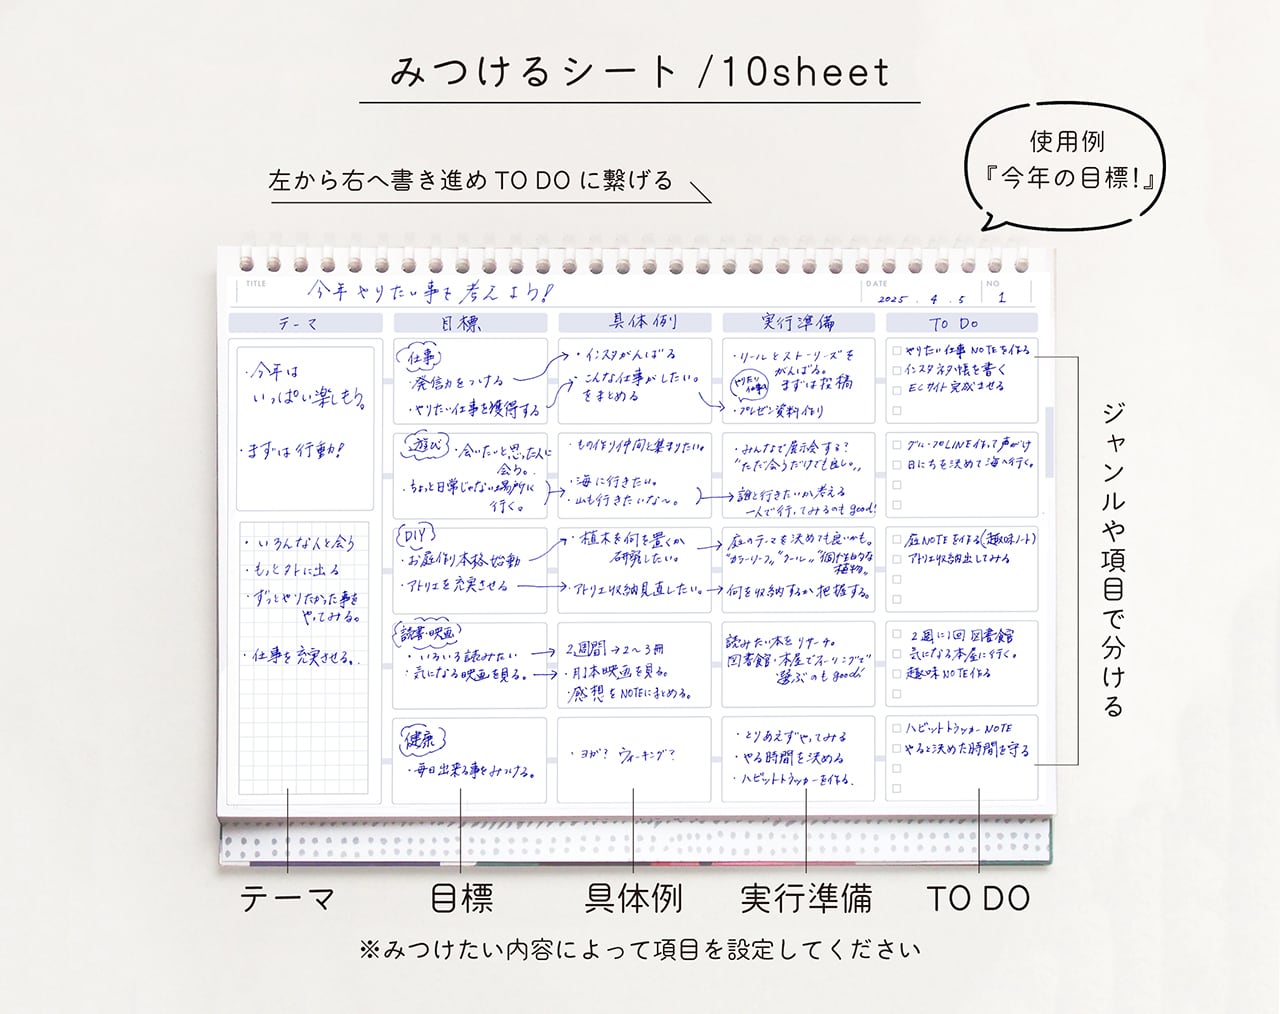 みつけるシート /10sheet
使用例
『今年の目標!』
左から右へ書き進め TO DO に繋げる
TITLE
今年やりたい事を考えよう!
DATE
2025 . 4 . 5
NO
1
テーマ
目標
具体例
実行準備
TO DO
・今年は
いっぱい楽しもう。
・まずは行動!
・いろんな人と会う
・もっと外に出る
・ずっとやりたかった事を
やってみる。
・仕事を充実させる。
仕事
・発信力をつける
・やりたい仕事を獲得する
・インスタがんばる
・こんな仕事がしたい。
をまとめる
・リールとストーリーズを
がんばる。
まずは投稿
やりたい
仕事
・プレゼン資料作り
やりたい仕事NOTEを作る
インスタネタ帳を書く
ECサイト完成させる
遊び
・会いたいと思った人に
会う。
・ちょっと日常じゃない場所に
行く。
・もの作り仲間と集まりたい。
・海に行きたい。
・山も行きたいな〜。
・みんなで展示会する?
"ただ会うだけでも良し。"
誰と行きたいか考える
一人で行ってみるのもgood!
グループLINE作って声がけ
日にちを決めて海へ行く。
DIY
・お庭作り本格始動
・アトリエを充実させる
・植木を何を置くか
研究したい。
・アトリエ収納見直したい。
庭のテーマを決めても良いかも。
"カラーリーフ" "クール" "個性的な
植物"
何を収納するか把握する。
庭NOTEを作る(趣味ノート)
アトリエ収納出してみる
読書・映画
・いろいろ読みたい
・気になる映画を見る。
2週間→2〜3冊
・月1本映画を見る。
・感想をNOTEにまとめる。
読みたい本をリサーチ。
図書館・本屋でフィーリングで
選ぶのもgood!
2週に1回図書館
気になる本屋に行く。
趣味NOTE作る
健康
・毎日出来る事をみつける。
・ヨガ? ウォーキング?
・とりあえずやってみる
・やる時間を決める
・ハビットトラッカーを作る。
ハビットトラッカーNOTE
やると決めた時間を守る
ジャンルや項目で分ける
テーマ
目標
具体例
実行準備
TO DO
※みつけたい内容によって項目を設定してください